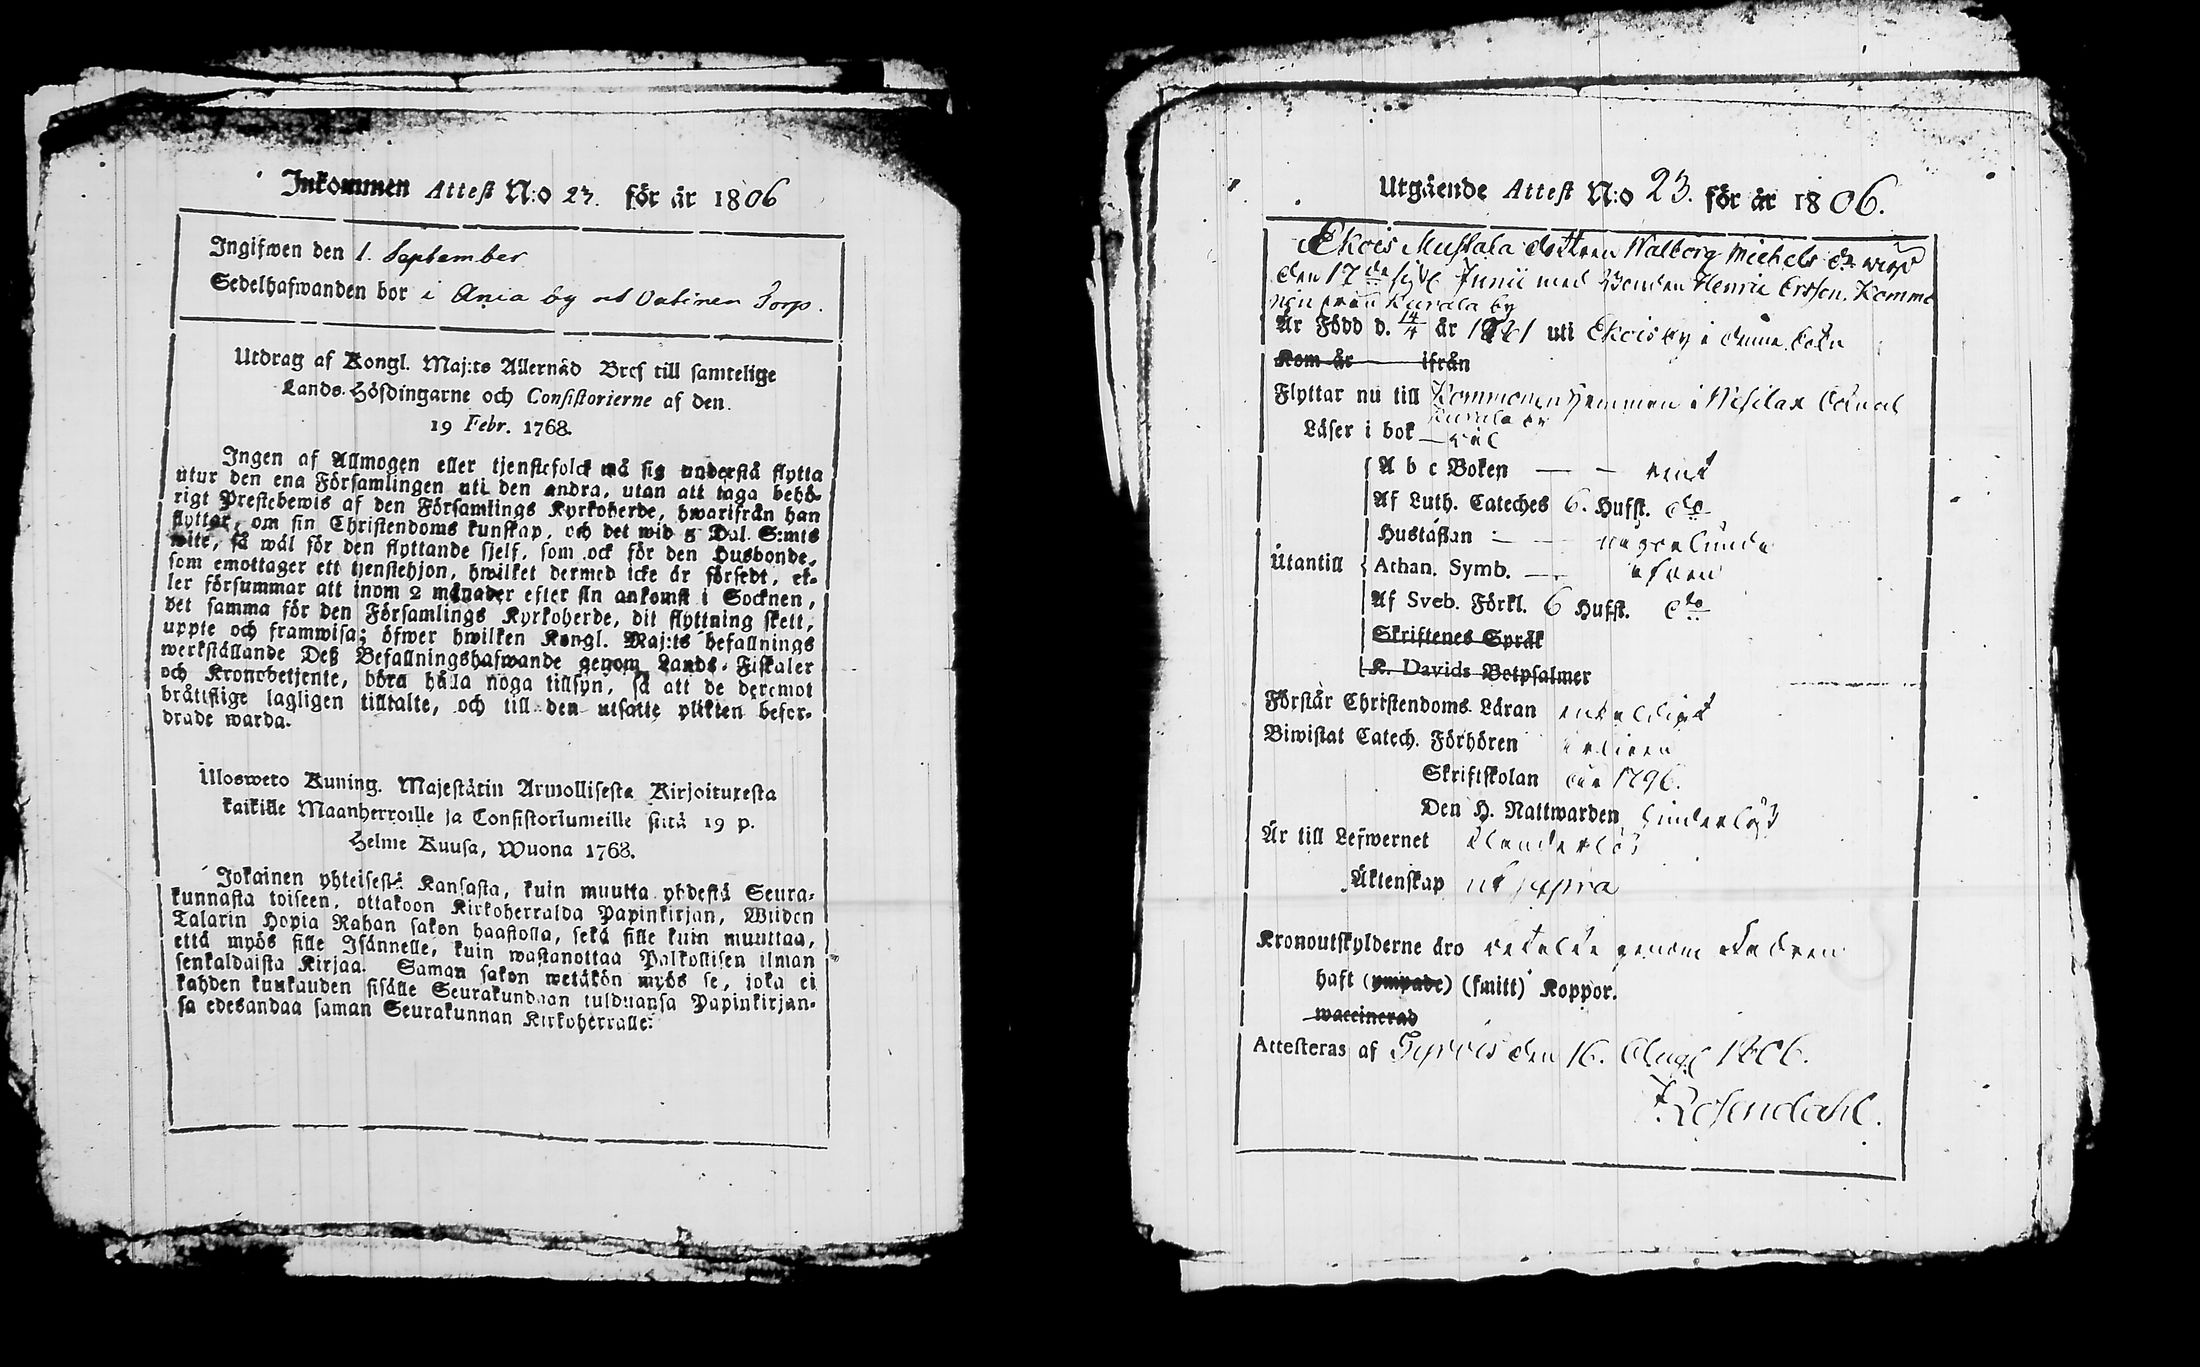 Inkommen Attest N:o 23. för år 1806
Ingifwen den 1. September
Sedelhafwanden bor i Ania by Torp.
Utdrag af Kongl. Maj:ts Allernåd Bref till samtelige
Lands-Höfdingarne och Consistorierne af den
19 Febr. 1768.
Ingen af Allmogen eller tjenstefolck må sig understå flytta
utur den ena Församlingen uti den andra, utan att taga behö-
rigt Prestebewis af den Församlings Kyrkoherde, hwarifrån han
flyttar, om sin Christendoms kunskap, och det wid 5 Dal. S:mts
wite, så wäl för den flyttande sjelf, som ock för den Husbonde,
som emottager ett tjenstehjon, hwilket dermed icke är försedt, el-
ler försummar att inom 2 månader efter sin ankomst i Socknen,
det samma för den Församlings Kyrkoherde, dit flyttning skett,
uppte och framwisa; öfwer hwilken Kongl. Maj:ts befallnings
werkställande Deß Befallningshafwande genom Lands-Fiskaler
och Kronobetjente, böra hålla noga tillsyn, så att de deremot
bråttslige lagligen tilltalte, och till den utsatte plikten befor-
drade warda.
Ulosweto Kuning. Majestätin Armollisesta Kirjoituxesta
kaikille Maanherroille ja Consistoriumeille siitä 19 p.
Helme Kuusa, Wuona 1768.
Jokainen yhteisestä Kansasta, kuin muutta yhdestä Seura-
kunnasta toiseen, ottakoon Kirkoherralda Papinkirjan, Wiiden
Talarin Hopia Rahan sakon haastolla, sekä sille kuin muuttaa,
että myös sille Isännelle, kuin wastanottaa Palkollisen ilman
senkaldaista Kirjaa. Saman sakon wetäkön myös se, joka ei
kahden kuukauden sisälle Seurakundaan tulduansa Papinkirjan-
sa edesandaa saman Seurakunnan Kirkoherralle.
Utgående Attest N:o 23. för år 1806.
Ekois Mustala dottren Walborg Michels dr
den 17de Junii med Bonden Henric Ersson. Kommo
nen från Kurala by
Är Född d. 14/4 år uti Ekois by i denna
Kom år ifrån
Flyttar nu till Kommonen Hemman i Wesilax
Kurala by
Läser i bok — väl
A b c Boken — — rent
Af Luth. Cateches 6. Hufst. do
Hustaflan — någorlunda
Utantill Athan. Symb. — äfven
Af Sveb. Förkl. 6 Hufst. do
Skriftenes Språk
K. Davids Botpsalmer
Förstår Christendoms Läran enfaldigt
Biwistat Catech. Förhören
Skriftskolan 1796.
Den H. Nattwarden hinderlöst
Är till Lefwernet klanderlös
Äktenskap
Kronoutskylderne äro betalte genom Fadren
haft (ympade) (smitt) Koppor.
waccinerad
Attesteras af Tyrvis den 16. Aug. 1806.
Rosendahl.